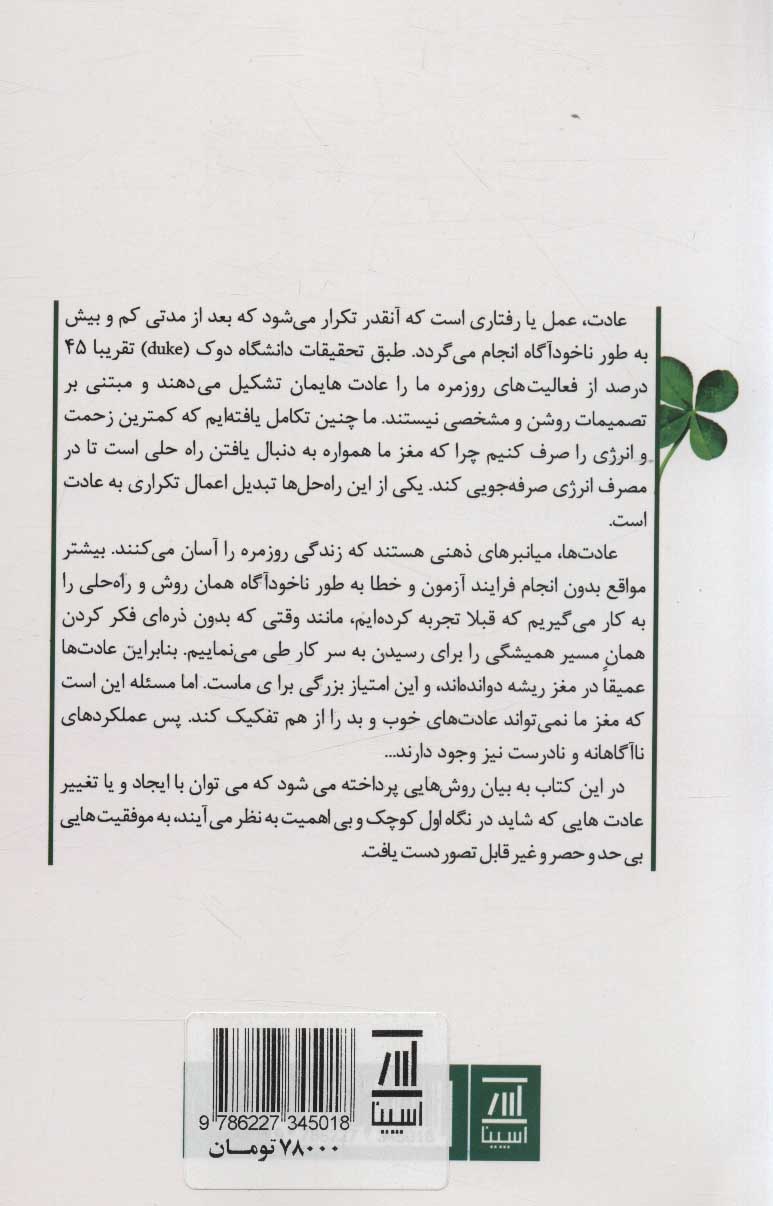 عادت، عمل یا رفتاری است که آنقدر تکرار می‌شود که بعد از مدتی کم و بیش
به طور ناخودآگاه انجام می‌گردد. طبق تحقیقات دانشگاه دوک (duke) تقریبا ۴۵
درصد از فعالیت‌های روزمره ما را عادت هایمان تشکیل می‌دهند و مبتنی بر
تصمیمات روشن و مشخصی نیستند. ما چنین تکامل یافته‌ایم که کمترین زحمت
و انرژی را صرف کنیم چرا که مغز ما همواره به دنبال یافتن راه حلی است تا در
مصرف انرژی صرفه‌جویی کند. یکی از این راه‌حل‌ها تبدیل اعمال تکراری به عادت
است.
عادت‌ها، میانبرهای ذهنی هستند که زندگی روزمره را آسان می‌کنند. بیشتر
مواقع بدون انجام فرایند آزمون و خطا به طور ناخودآگاه همان روش و راه‌حلی را
به کار می‌گیریم که قبلا تجربه کرده‌ایم، مانند وقتی که بدون ذره‌ای فکر کردن
همان مسیر همیشگی را برای رسیدن به سر کار طی می‌نماییم. بنابراین عادت‌ها
عمیقاً در مغز ریشه دوانده‌اند، و این امتیاز بزرگی برا ی ماست. اما مسئله این است
که مغز ما نمی‌تواند عادت‌های خوب و بد را از هم تفکیک کند. پس عملکردهای
ناآگاهانه و نادرست نیز وجود دارند...
در این کتاب به بیان روش‌هایی پرداخته می شود که می توان با ایجاد و یا تغییر
عادت هایی که شاید در نگاه اول کوچک و بی اهمیت به نظر می آیند، به موفقیت‌هایی
بی حد و حصر و غیر قابل تصور دست یافت.
اسپینا
9 786227 345018
۷۸۰۰۰ تومـــان
اسپینا